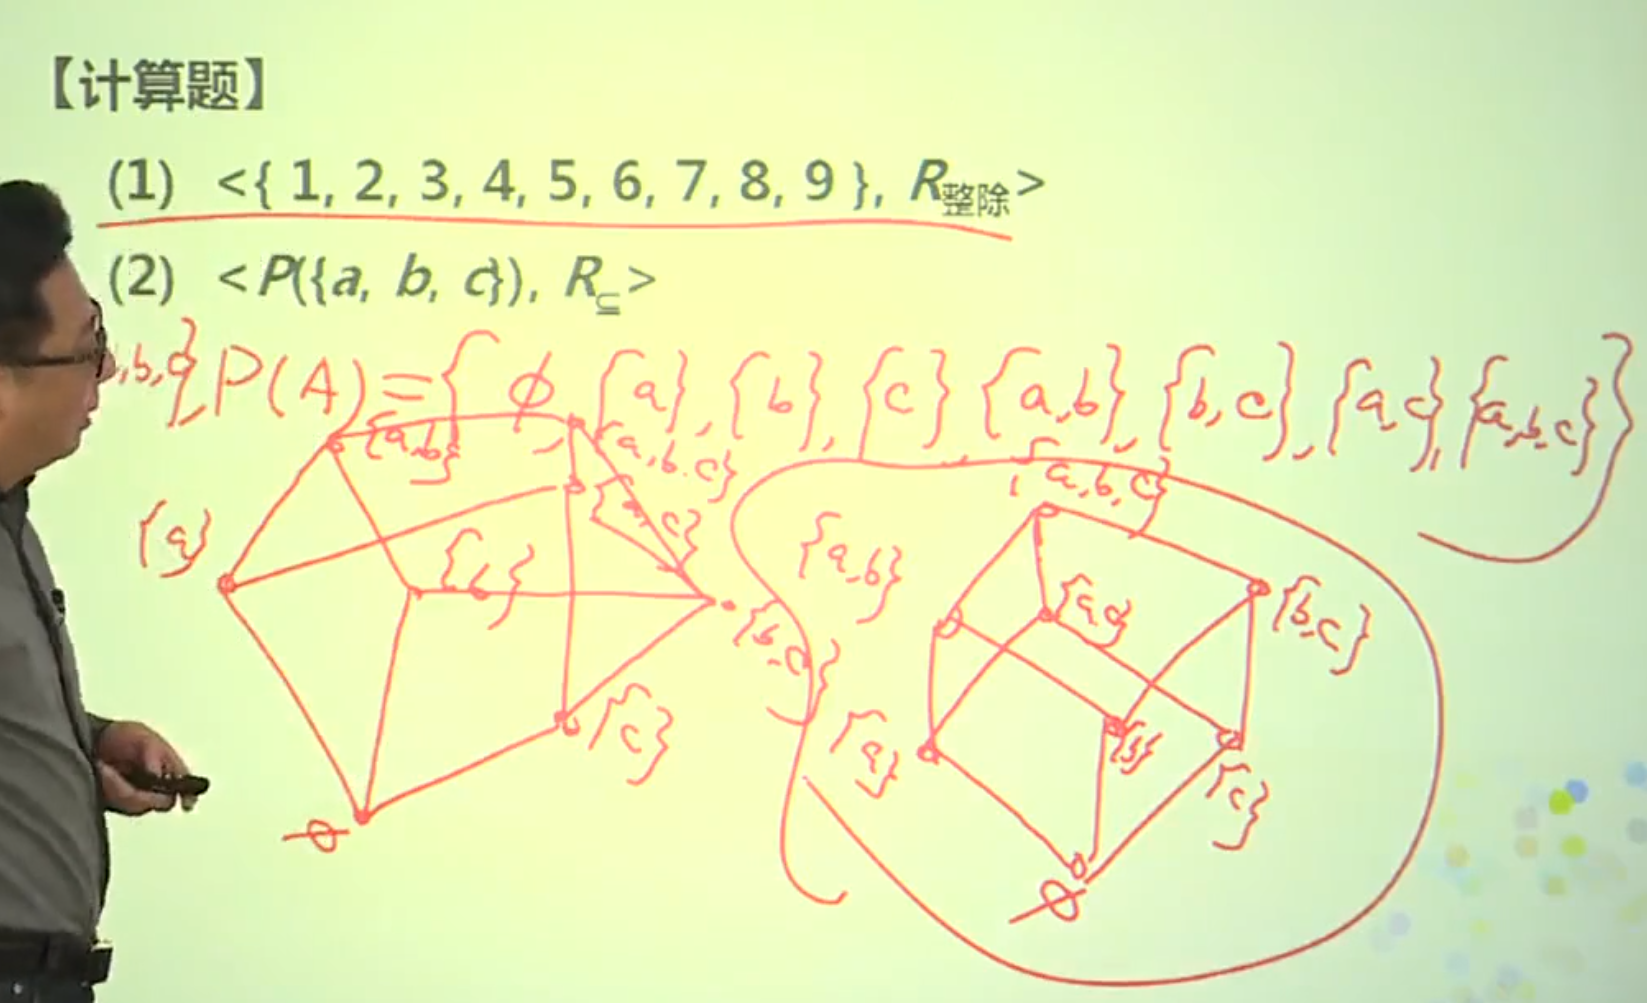 【计算题】
(1) <{ 1, 2, 3, 4, 5, 6, 7, 8, 9 }, R整除>
(2) <P({a, b, c}), R⊆>
,b,c},P(A)={ϕ,{a},{b},{c},{a,b},{b,c},{a,c},{a,b,c}}
{a,b}
{a,b,c}
{a}
{a,c}
{b}
{b,c}
{c}
∅
{a,b,c}
{a,b}
{a,c}
{b,c}
{a}
{b}
{c}
∅